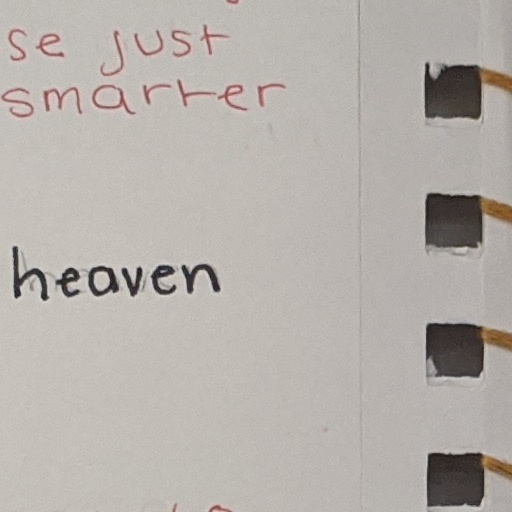 se just
smarter
heaven